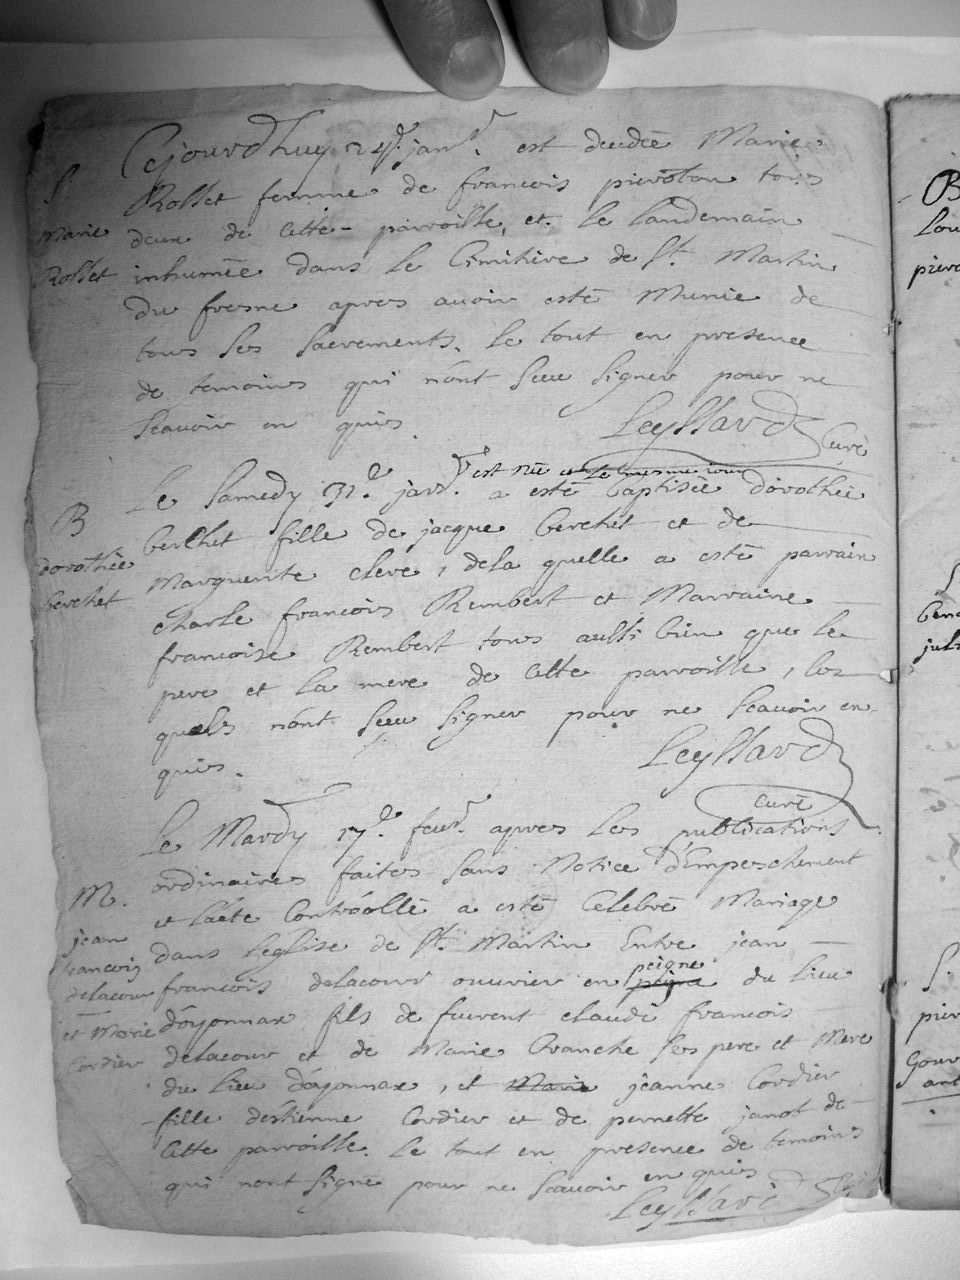 Cejourd'huy 24e. janr. est decdée Marie
S.
Marie
Rosset
Rosset femme de francois pierotou tous
deux de cette parroisse, et le landemain
inhumée dans le Cimitiere de St. Martin
du fresne apres avoir esté Munie de
tous ses sacrements. Le tout en presence
de temoins qui n'ont sceu signer pour ne
scavoir en quis.
Leyssard Curé
Le Samedy 31e. janr. est née et le mesme jour a esté baptisée dorothée
B
dorothée
berchet
berchet fille de jacque berchet et de
Marguerite clerc, de la quelle a esté parrain
charle francois Rembert et Marraine
francoise Rembert tous aussi bien que le
pere et la mere de cette parroisse, les
quels n'ont sceu signer pour ne scavoir en
quis.
Leyssard
curé
Le Mardy 17e. fevr. apres les publications
M.
jean
francois
delacour
et Marie
Cordier
ordinaires faites sans Notice d'Empeschement
et l'acte Controollé a esté Celebré Mariage
dans l'eglise de St. Martin Entre jean
francois delacour ouvrier en peigne du lieu
d'oyonnax fils de feu claude francois
delacour et de Marie ses pere et Mere
du lieu d'oyonnax, et Marie jeanne Cordier
fille d'estienne Cordier et de pernette janot de
cette parroisse. Le tout en presence de temoins
qui n'ont signé pour ne scavoir en quis
Leyssard
B
Lou
S.
pier
Gour
ant